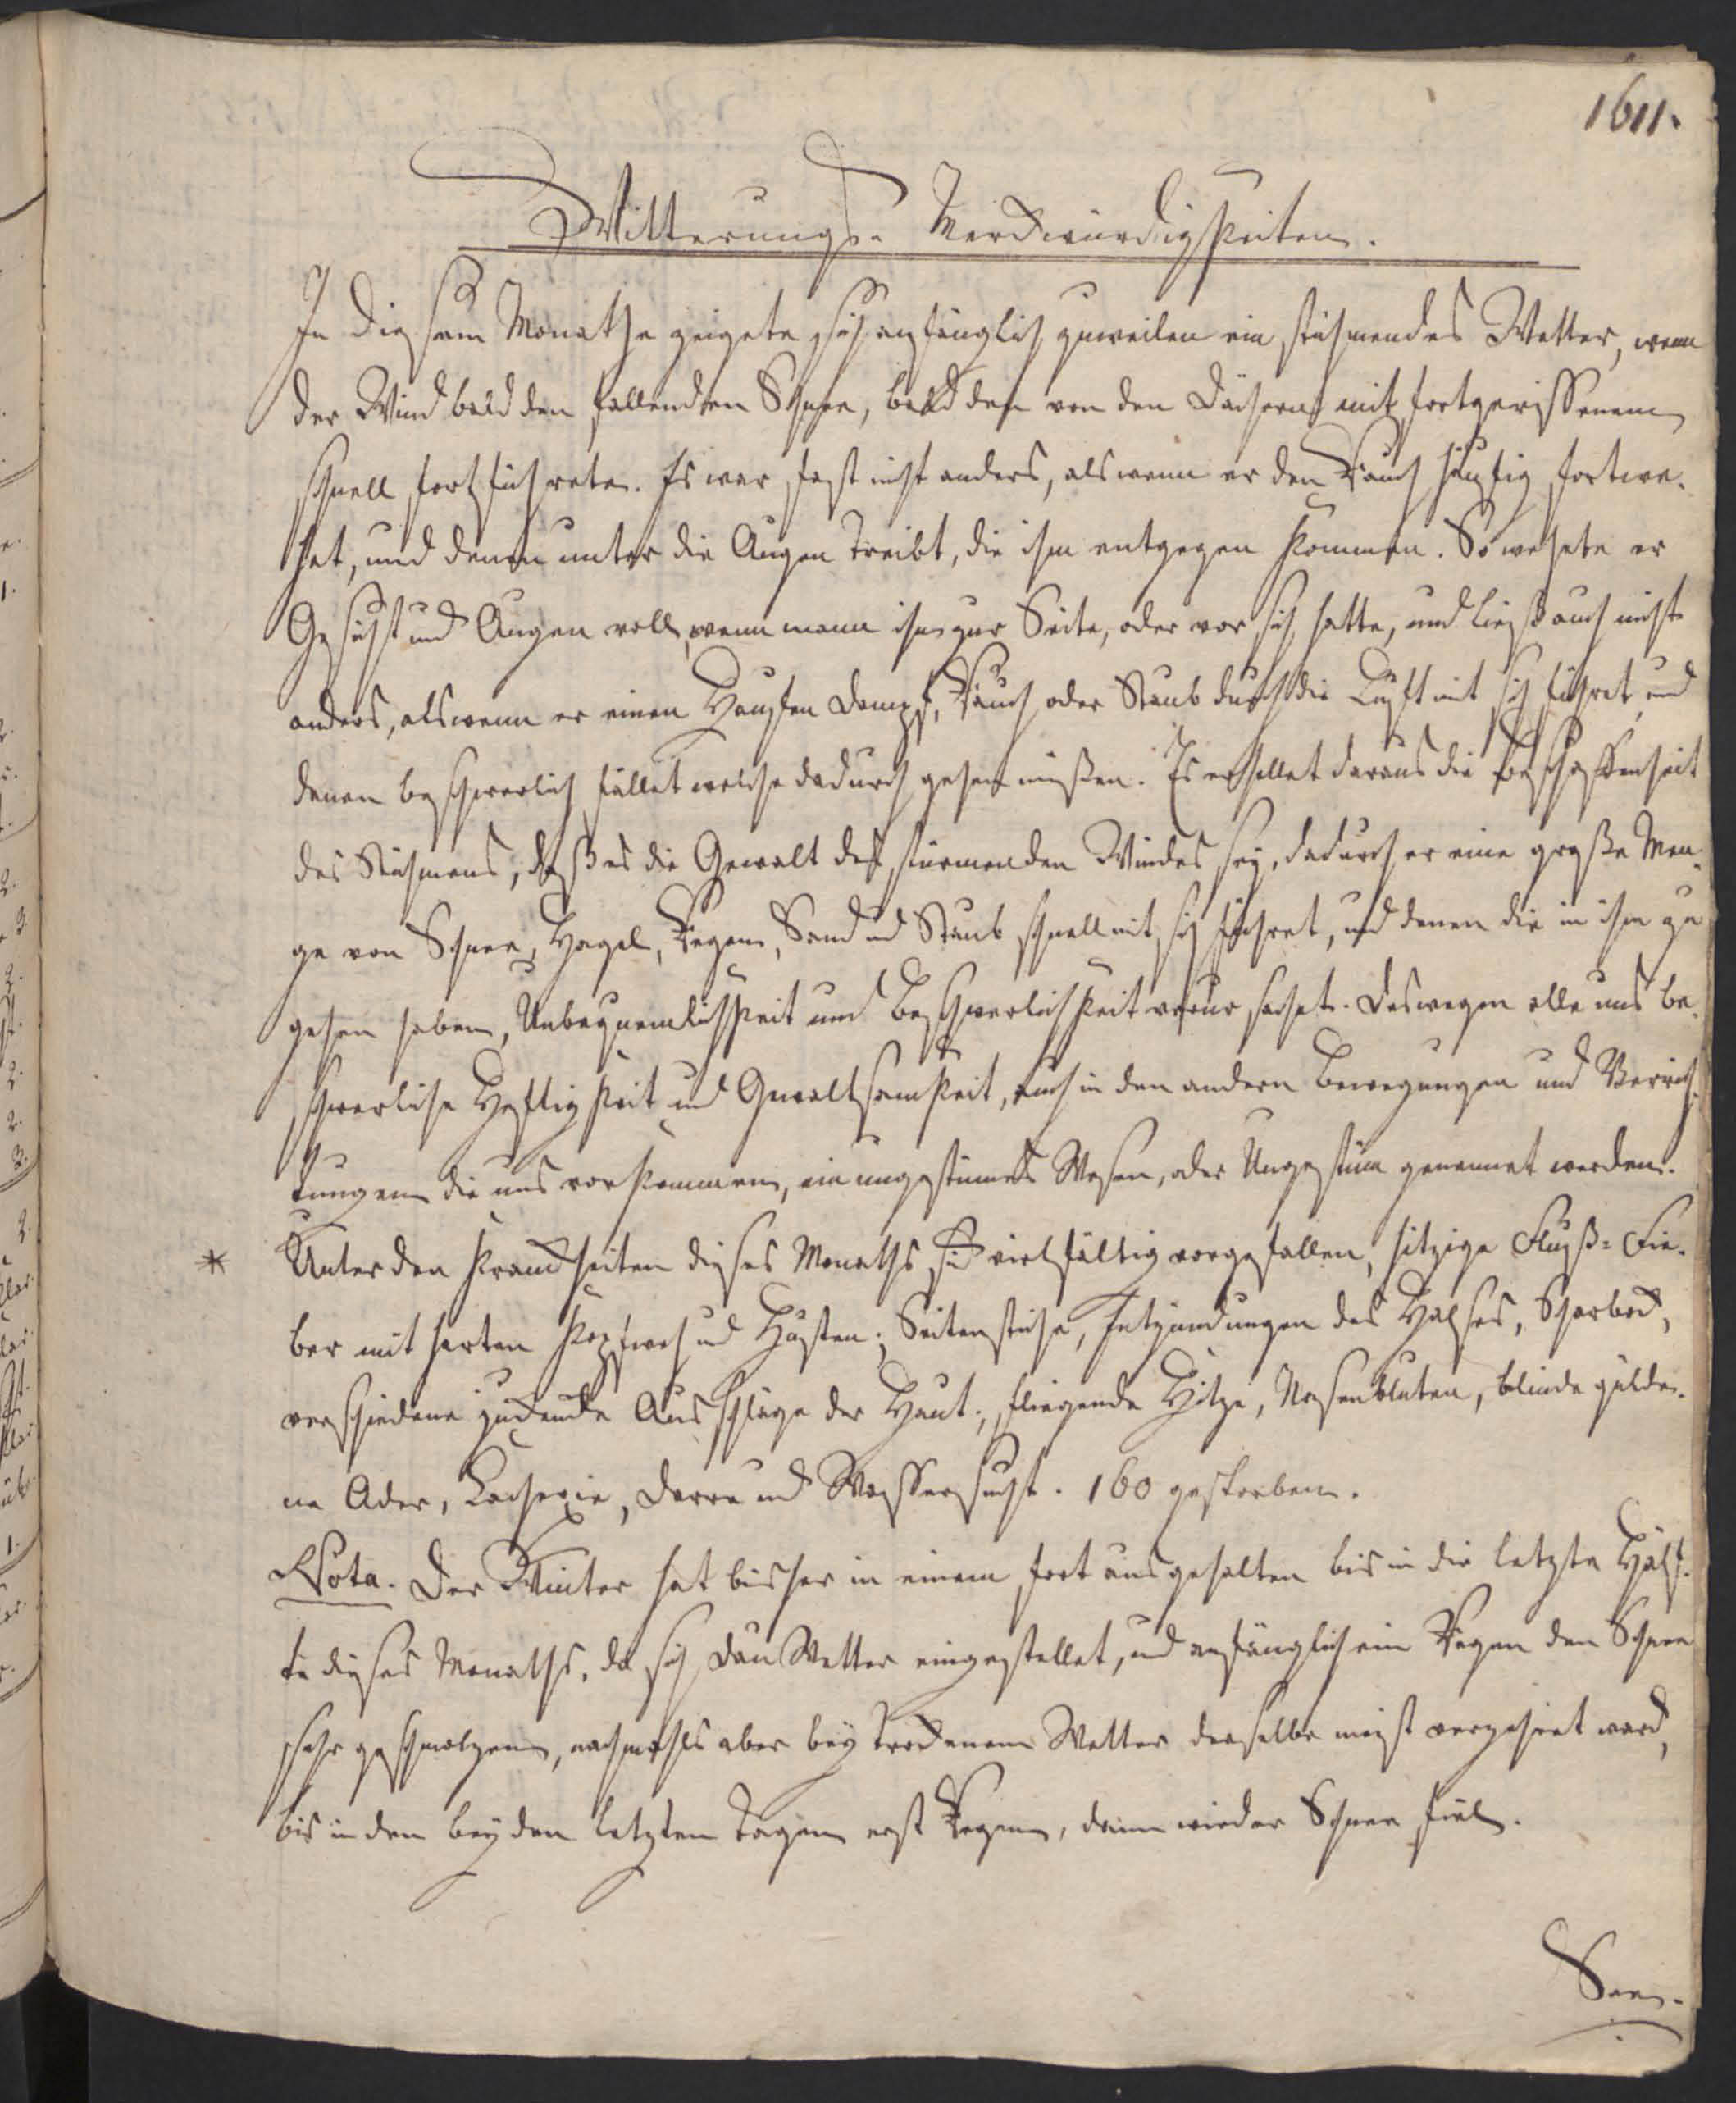 1611.
Witterungs-Merckwürdigkeiten.
In diesem Monathe zeigete sich anfänglich zuweilen ein stühmendes Wetter, wenn
der Wind bald den fallenden Schnee, bald den von den Dächern mit fortgerissenem
schnell fortführete. Es war fast nicht anders, als wenn er den Rauch häufig fortwe-
het, und denen unter die Augen treibt, die ihm entgegen kommen. So wehete er
Gesicht und Augen voll, wenn mann ihn zur Seite, oder vor sich hatte, und ließ auch nicht
anders, als wenn er einen Haufen Dampf, Rauch oder Staub durch die Luft mit sich führet, und
denen beschwerlich fället welche dadurch gehen müßen. Es erhellet daraus die Beschaffenheit
des Stühmens, daß es die Gewalt des stürmenden Windes sey, dadurch er eine große Men-
ge von Schnee, Hagel, Regen, Sand und Staub schnell mit sich führet, und denen die in ihm zu
gehen haben, Unbequemlichkeit und Beschwerlichkeit verursachet. Deswegen alle uns be-
schwerliche Heftigkeit und Gewaltsamkeit, auch in den andern Bewegungen und Verrich-
tungen die uns vorkommen, ein ungestümes Wesen, oder Ungestüm genennet werden.
* Unter den Kranckheiten dieses Monaths sind vielfältig vorgefallen, hitzige Fluß-Fie-
ber mit harten Kopfweh und Husten; Seitenstiche, Entzündungen des Halses, Scharbock,
verschiedene juckende Ausschläge der Haut; fliegende Hitze, Nasenbluten, blinde gülde-
ne Ader, Cachexie, Darre und Wassersucht. 160 gestorben.
Nota. Der Winter hat bisher in einem fort ausgehalten bis in die letzte Hälf-
te dieses Monaths, da sich Dau Wetter eingestellet, und anfänglich ein Regen den Schnee
sehr geschmolzen, nachmahls aber bey trockenem Wetter derselbe meist verzehret ward,
bis in den beyden letzten Tagen erst Regen, dann wieder Schnee fiel.